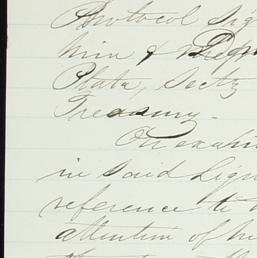 Protocol sig
him &
Plata, Secty
Treasury.
On exami
in said Liqu
reference to
attention of he